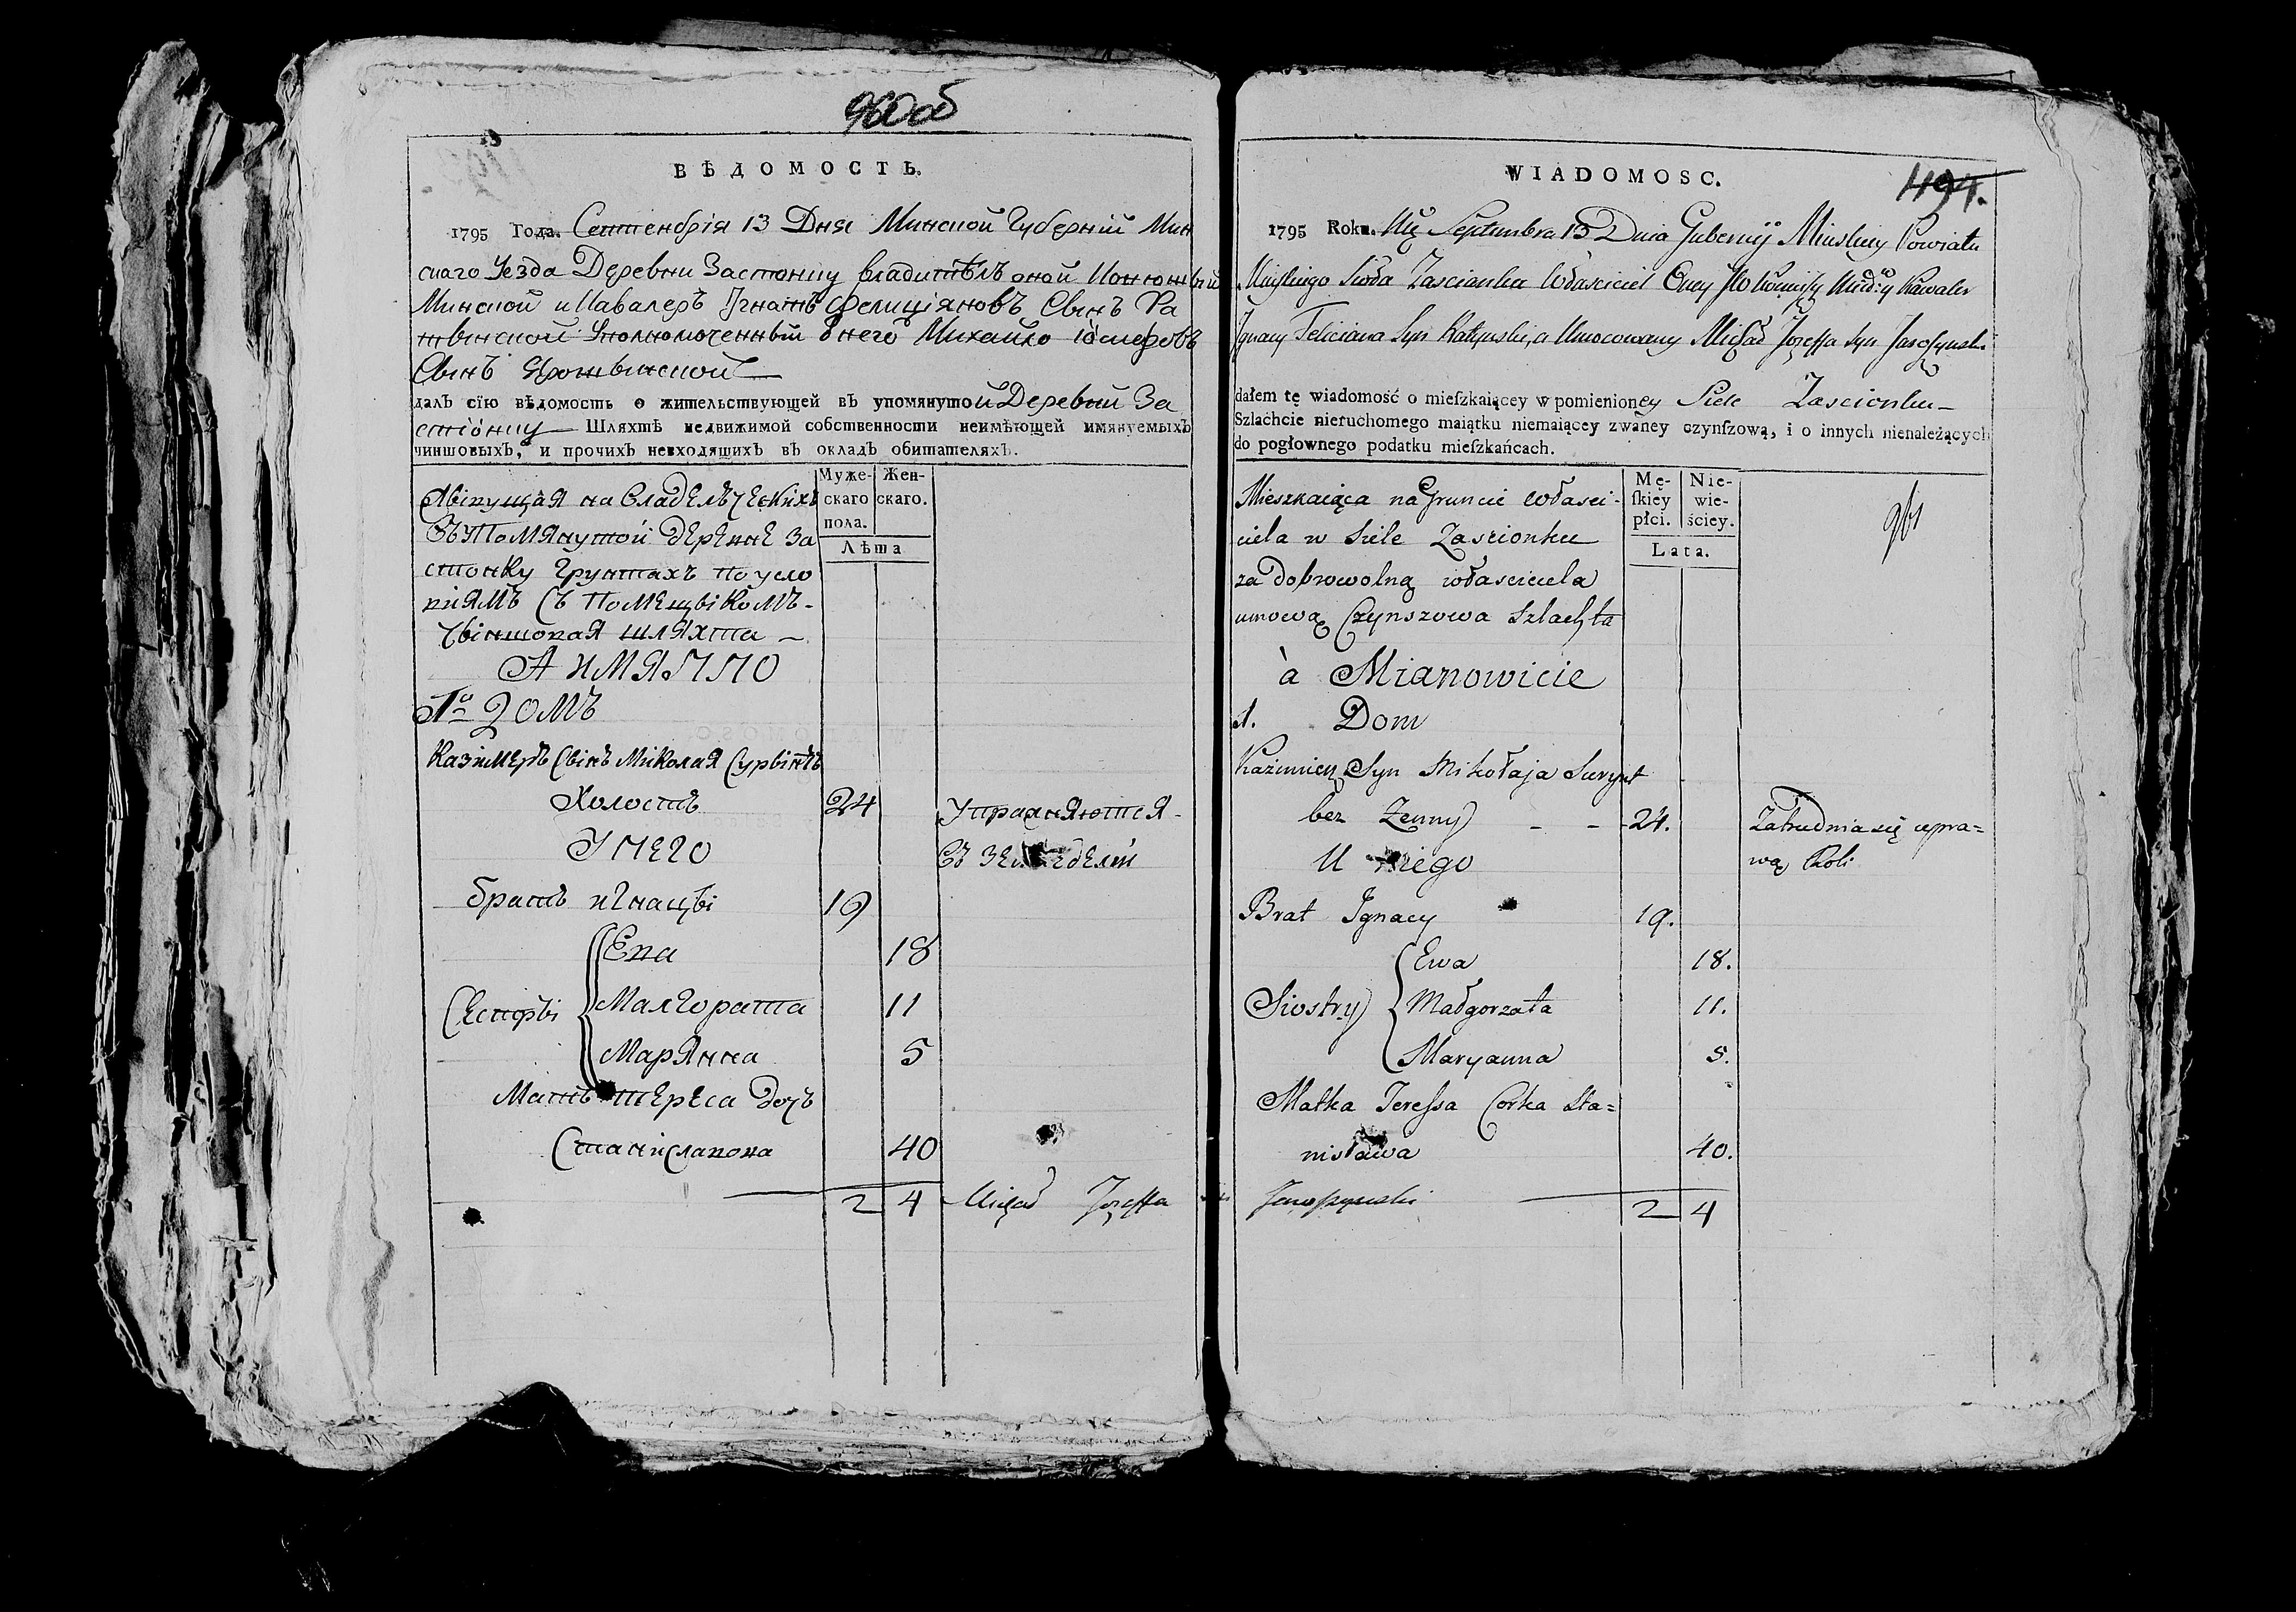 960об
ВѢДОМОСТЬ.
1795 Года. Септембрія 13 Дня Минской Губерніи Мин
скаго Уезда Деревни Застонку владитѣль оной
Минской и Кавалеръ Игнатъ Фелиціяновъ Сынъ Ра
тынской Уполномоченный Михайло Іосифовъ
Сынъ
далъ сїю вѣдомость о жительствующей въ упомянутой Деревни За
стонку Шляхтѣ недвижимой собственности неимѣющей имянуемыхъ
чиншовыхъ, и прочихъ невходящихъ въ окладъ обитателяхъ.
Муже-
скаго
пола.
Жен-
скаго.
Лѣта
Живущая на Владелческихъ
Въупомянутой дерекне За
стонку Грунтахъ по усло
виямъ Съ Помещыкомъ-
Чыншовая шляхта –
А ИМЯННО
1о ДОМЪ
Казимеръ Сынъ Миколая Сурынтъ
Холостъ 24 Упражняютея-
Съ
У НЕГО
братъ игнацы 19
Ева 18
Сестры Малгората 11
Марянна 5
Матъ тереса дочъ
Станиславова 40
2 4 Michał Jozeffa
WIADOMOSC.
1194.
1795 Roku. Septembra 13 Dnia Gubernij Minskiey Powiatu
Minskiego Sioła Zascianku Właściciel Oney Kawaler
Ignacy Feliciana Syn Ratynski, a Umocowany Michał Jozeffa Syn
dałem tę wiadomość o mieſzkaiącey w pomienioney Siele Zascionku–
Szlachcie nieruchomego maiątku niemaiącey zwaney czynſzową, i o innych nienależących
do pogłownego podatku mieſzkańcach.
Mę-
ſkiey
płci.
Nie-
wie-
ściey.
Lata.
961
Mieszkaiąca na Gruncie własci-
ciela w Siele Zascionku
za dobrowolną własciciela
umową Czynszowa Szlachta
à Mianowicie
1. Dom
Kazimierz Syn Mikołaja Surynt
bez Zenny – – 24. Zatrudnia się upra=
wą Roli
U Niego
Brat Ignacy 19.
Ewa 18.
Siostry Małgorzata 11.
Maryanna 5.
Matka Teressa Corka Sta=
nisława 40.
2 4